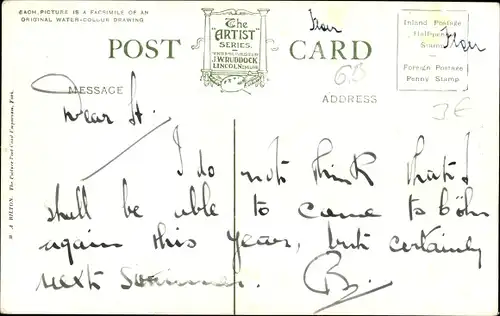 EACH PICTURE IS A FACSIMILE OF AN
ORIGINAL WATER-COLOUR DRAWING
The
"ARTIST"
SERIES.
J.W. RUDDOCK
LINCOLN
POST CARD
Inland Postage
Halfpenny
Stamp
Foreign Postage
Penny Stamp
MESSAGE
ADDRESS
3€
Dear St.
I do not think that I
shall be able to come to Köln
again this year, but certainly
next Summer. B.